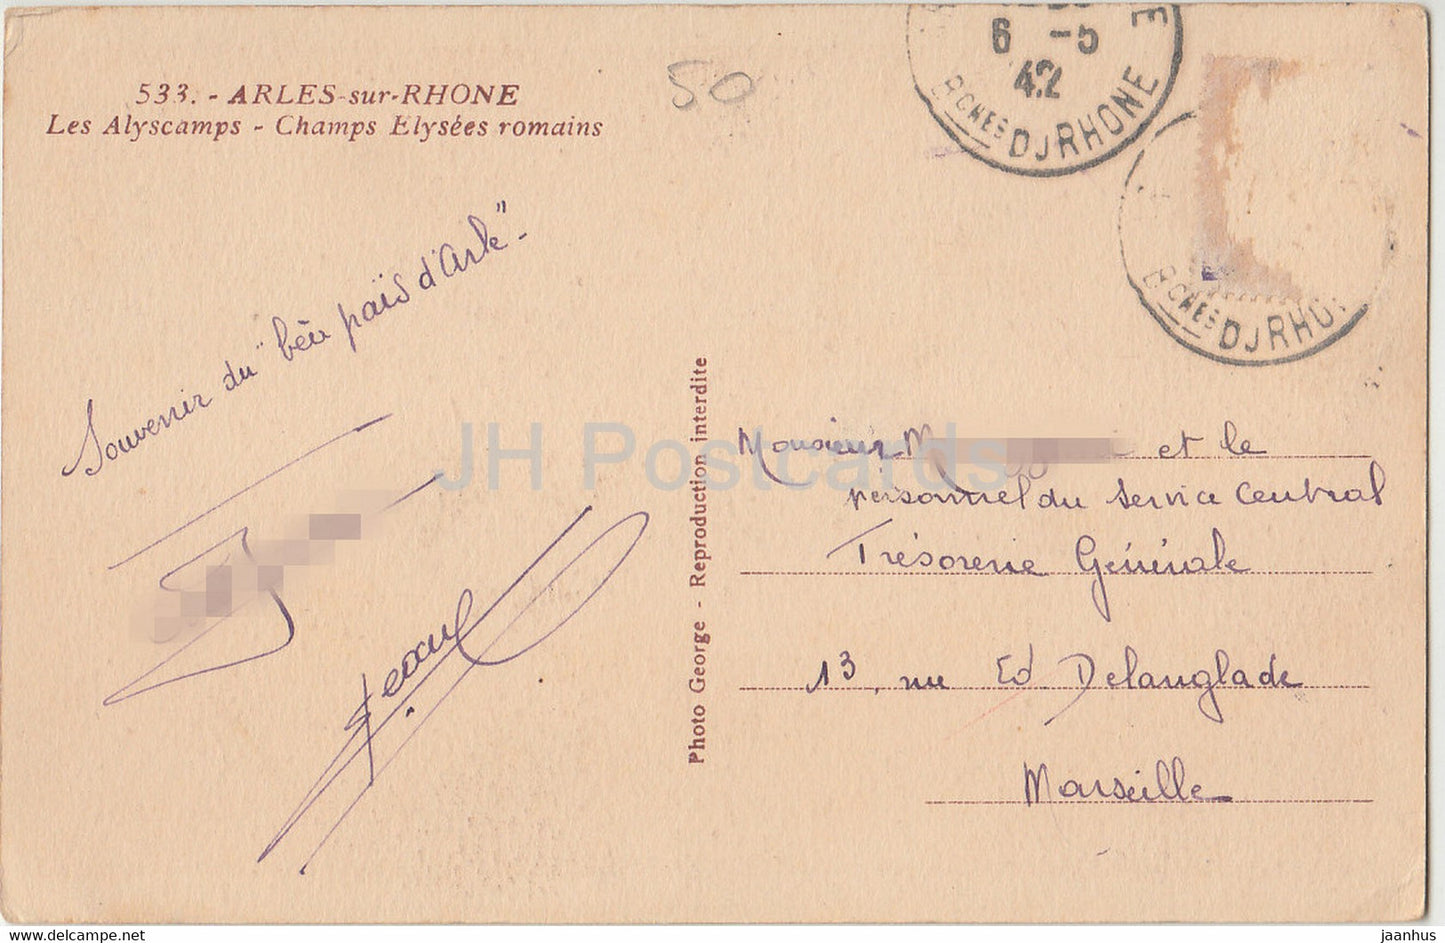 533. - ARLES-sur-RHONE
Les Alyscamps - Champs Elysées romains
50
6 -5
42
BCHES DU RHONE
BCHES DU RHO
Souvenir du "bèu païs d'Arle" -
Jean
Photo George - Reproduction interdite
Monsieur M et le
personnel du Service Central
Trésorerie Générale
13, rue Ed. Delanglade
Marseille
JH Postcards
www.delcampe.net
jaanhus